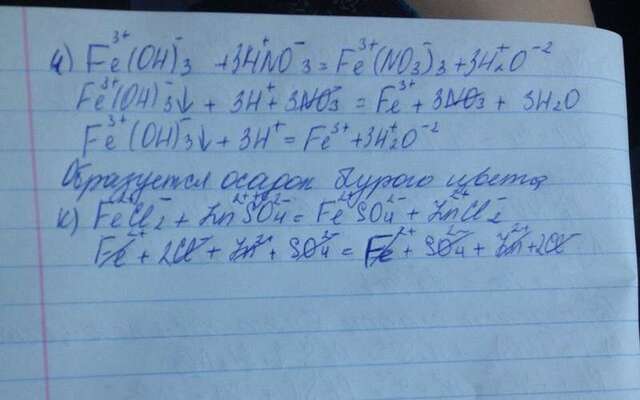 и) Fe³⁺(OH)⁻₃ + 3H⁺NO⁻₃ = Fe³⁺(NO₃⁻)₃ + 3H₂⁺O⁻²
Fe³⁺(OH)⁻₃↓ + 3H⁺ + 3NO₃⁻ = Fe³⁺ + 3NO₃⁻ + 3H₂O
Fe³⁺(OH)⁻₃↓ + 3H⁺ = Fe³⁺ + 3H₂⁺O⁻²
Образуется осадок бурого цвета
к) Fe²⁺Cl₂⁻ + Zn²⁺SO₄²⁻ = Fe²⁺SO₄²⁻ + Zn²⁺Cl₂⁻
Fe²⁺ + 2Cl⁻ + Zn²⁺ + SO₄²⁻ = Fe²⁺ + SO₄²⁻ + Zn²⁺ + 2Cl⁻